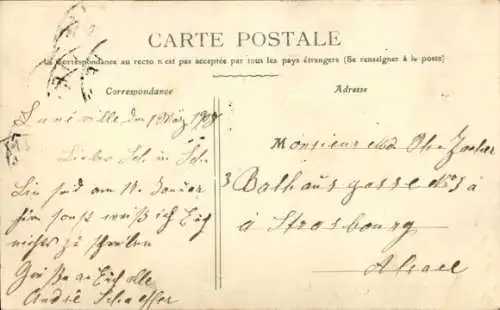 CARTE POSTALE
La Correspondance au recto n'est pas acceptée par tous les pays étrangers (Se renseigner à la poste)
Correspondance
Adresse
Lunéville den 1 März
Lieber
Bin seid am 18. Januar
hier sonst weiß ich Euch
nichts zu schreiben
Grüße an Euch alle
André Schaeffer
Monsieur
Ballhausgasse No 3 à
à Strasbourg
Alsace